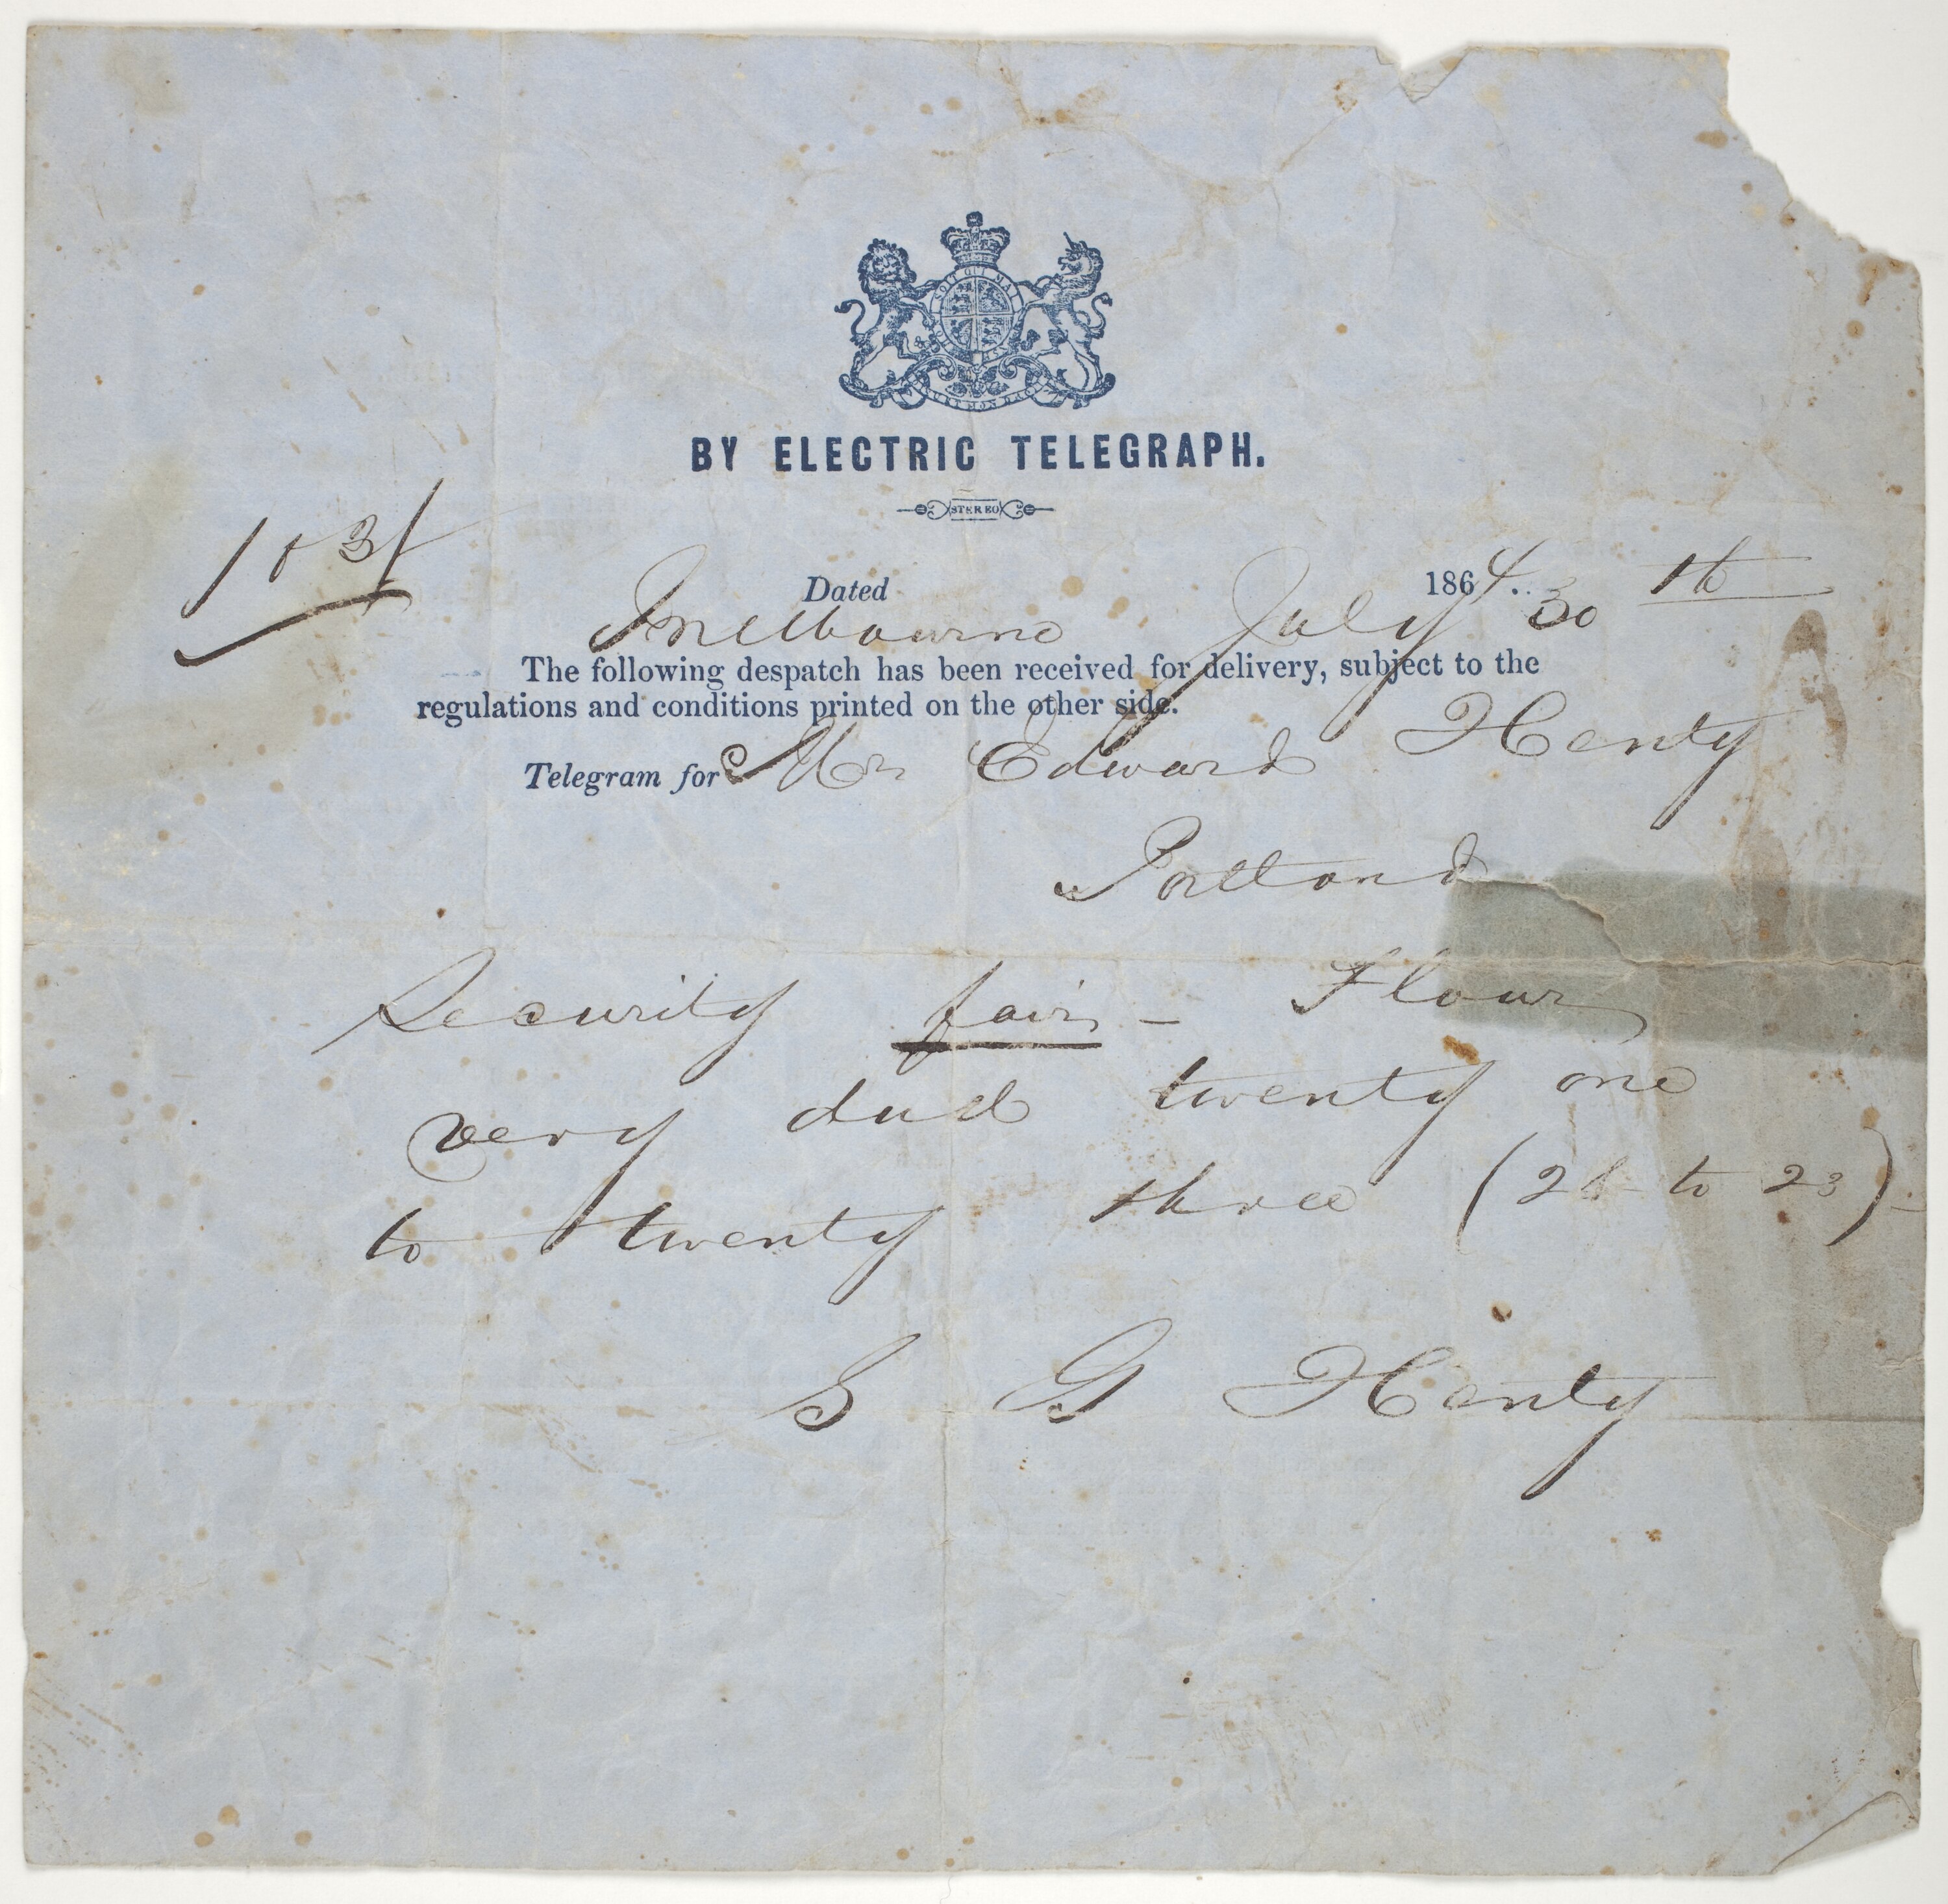 SOIT QUI MAL
BY ELECTRIC TELEGRAPH.
STEREO
Dated 1864.. 30 th
Melbourne July
The following despatch has been received for delivery, subject to the
regulations and conditions printed on the other side.
Telegram for Mr Edward Henty
Portland
Security fair - Flour
very dull twenty one
to twenty three (21 to 23) -
S G Henty